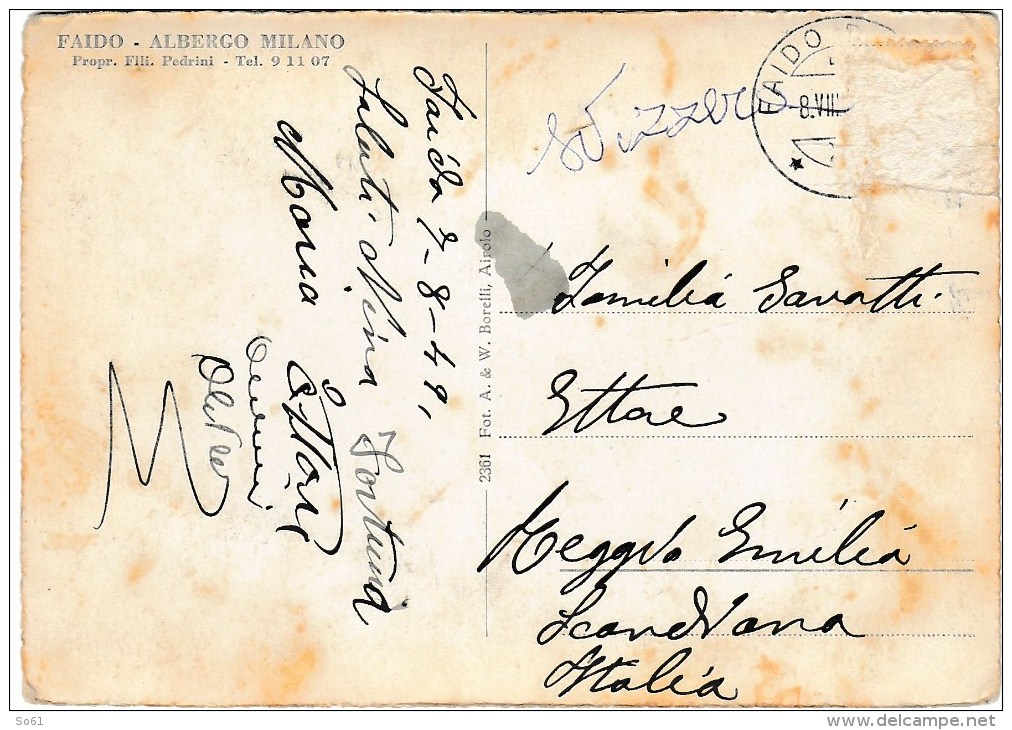 FAIDO - ALBERGO MILANO
Propr. Flli. Pedrini - Tel. 9 11 07
Faido 7-8-49,
Saluti Nina Fortuna
Maria Ettore
M
2361 Fot. A. & W. Borelli, Airolo
Svizzera
FAIDO
8.VIII
Familia Savatti
Ettore
Reggio Emilia
Scandiana
Italia
So61
www.delcampe.net